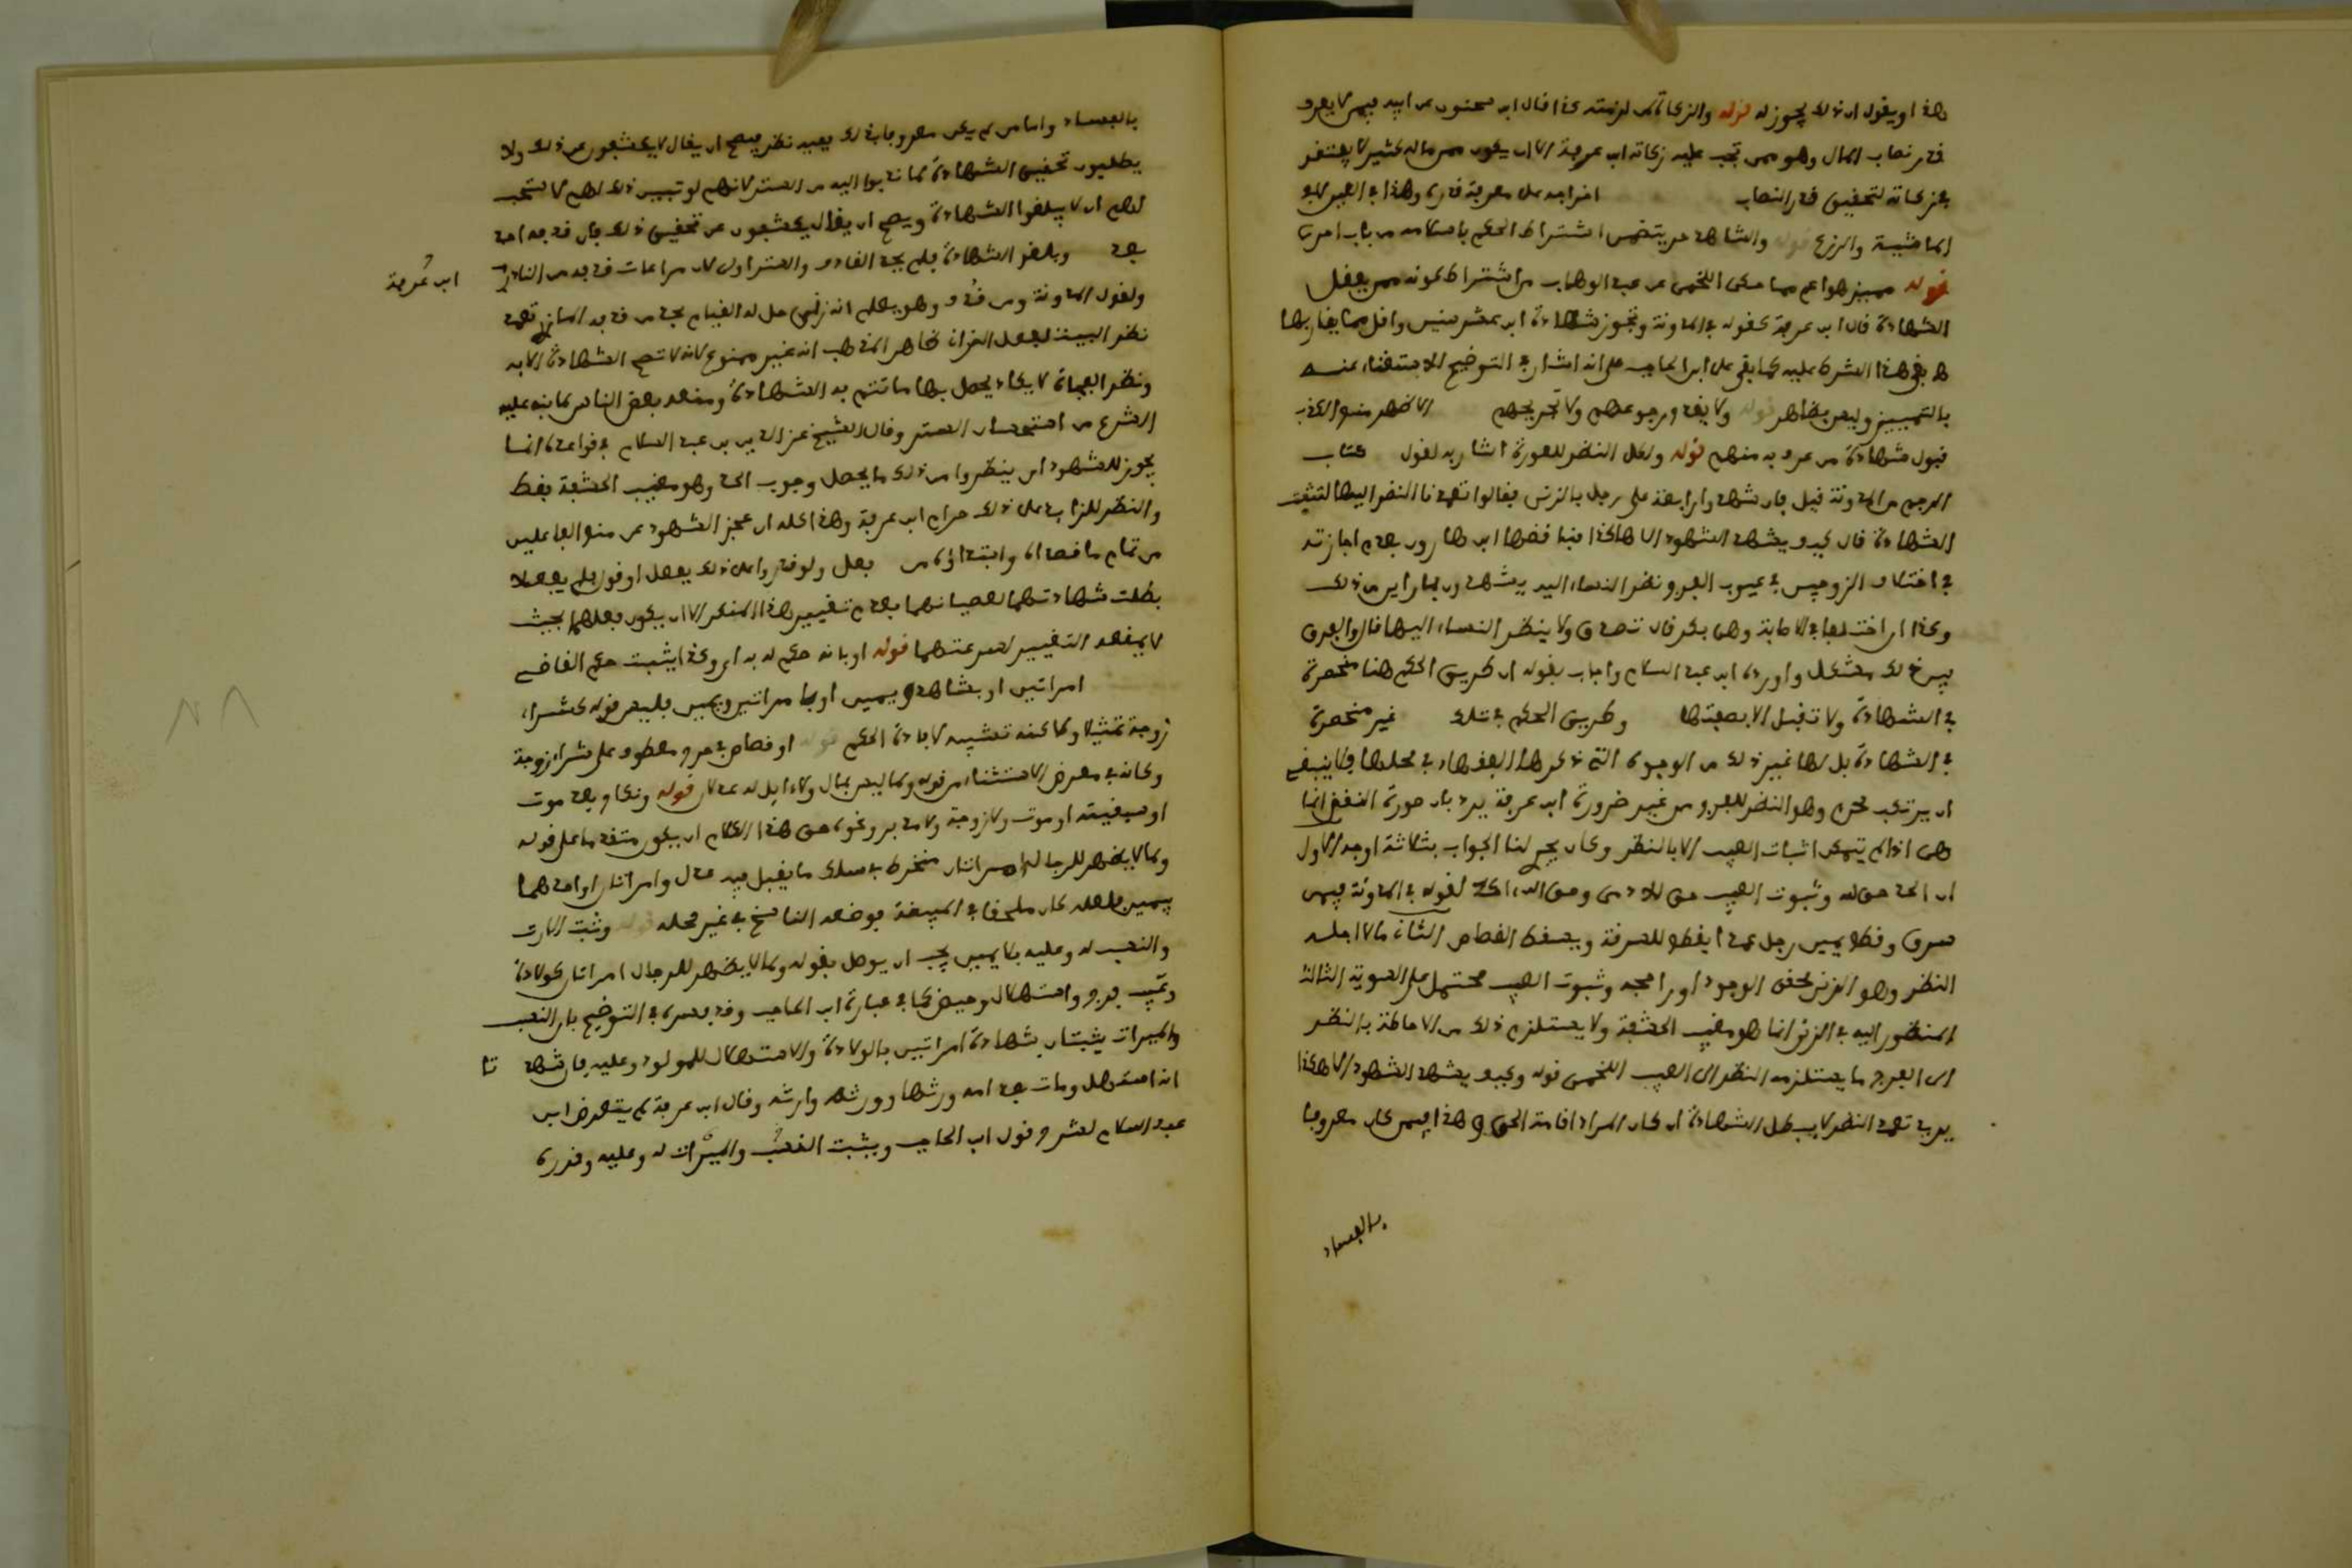 هذا او يقول ان ذلك يجوز له قوله والزكاة لزمته كذا قال ابن سحنون عن ابيه فيمن لا يعرف
قدر نصاب المال وهو ممن تجب عليه زكاته ابن عرفة الا ان يكون ممن ماله كثير لا يفتقر
في زكاته لتحقيق قدر النصاب اخراجه على معرفة قدره وهذا في العين
الماشية والزرع قوله والشاهد يتضمن اشتراط الحكم من باب
قوله مميز هو اعم مما حكى اللخمي عن عبد الوهاب من اشتراط كونه ممن يعقل
الشهادة قال ابن عرفة كقوله في المدونة وتجوز شهادة ابن عشر سنين واقل مما يقاربها
بقي هذا الشرط عليه كما بقي على ابن الحاجب على انه اشار في التوضيح للاستغناء عنه
بالتمييز وليس بظاهر قوله ولا يقدح رجوعهم ولا تجريحهم
قبول شهادة من عرف به منهم قوله ولكل النظر للعورة اشار به لقول كتاب
الرجم من المدونة قيل فان شهد اربعة على رجل بالزنى فقالوا تعمدنا النظر اليهما لتثبت
الشهادة قال كيف يشهد الشهود الا هكذا فناقضها ابن هارون بعدم اجازته
في اختلاف الزوجين في عيوب الفرج نظر النساء اليه يشهدن بما راين من ذلك
وكذا ان اختلفا في الاصابة وهي بكر قال تصدق ولا ينظر النساء اليها قال والفرق
بين ذلك مشكل واورده ابن عبد السلام واجاب بقوله ان طريق الحكم هنا منحصرة
في الشهادة ولا تقبل الا بصفتها وطريق الحكم في تلك غير منحصرة
في الشهادة بل لها غير ذلك من الوجوه التي ذكرها الفقهاء في محلها فلا ينبغي
ان يرتكب محرم وهو النظر للفرج من غير ضرورة ابن عرفة يرد بان صورة النقض انما
هي اذا لم يمكن اثبات العيب الا بالنظر وكان يجري لنا الجواب بثلاثة اوجه الاول
ان الحد حق لله وثبوت العيب حق للادمي وحق الله اكد لقوله في المدونة فيمن
سرق وقطع يمين رجل عمدا يقطع للسرقة ويسقط القصاص الثاني ما لاجله
النظر وهو الزنى محقق الوجود او راجحه وثبوت العيب محتمل على السوية الثالث
المنظور اليه في الزنى انما هو مغيب الحشفة ولا يستلزم ذلك من الاحاطة بالنظر
الى الفرج ما يستلزمه النظر الى العيب اللخمي قوله وكيف يشهد الشهود الا هكذا
يريد تعمد النظر لا يبطل الشهادة ان كان المراد اقامة الحق وهذا فيمن كان معروفا
بالفساد
بالفساد واما من لم يكن معروفا بذلك ففيه نظر فيصح ان يقال لا يكشفون عن ذلك ولا
يطلبون تحقيق الشهادة لما ندبوا اليه من الستر لانهم لو تبين ذلك لهم لاستحب
لهم ان لا يبلغوا الشهادة ويصح ان يقال يكشفون عن تحقيق ذلك فان قذفه احد
بعد وبلغوا الشهادة فلم يحد القاذف والستر اولى لان مراعات قذفه من النادر
ابن عرفة
ولقول المدونة ومن قذف وهو يعلم انه زنى حل له القيام بحد من قذفه المازري تعمد
نظر البينة لفعل الزاني ظاهر المذهب انه غير ممنوع لانه لا تصح الشهادة الا به
ونظر الفجاة لا يكاد يحصل بها ما تتم به الشهادة ومنعه بعض الناس لما نبه عليه
الشرع من استحسان الستر وقال الشيخ عز الدين بن عبد السلام في قواعده انما
يجوز للشهود ان ينظروا من ذلك ما يحصل وجوب الحد وهو مغيب الحشفة فقط
والنظر للزائد على ذلك حرام ابن عرفة وهذا كله ان عجز الشهود عن منع الفاعلين
من تمام ما قصداه وابتداؤه من فعل ولو قدروا على ذلك بفعل او قول فلم يفعلا
بطلت شهادتهما لعصيانهما بعدم تغيير هذا المنكر الا ان يكون فعلهما بحيث
لا يمنعه التغيير لسرعتهما قوله او بانه حكم له به اي وكذا يثبت حكم القاضي
امراتين او بشاهد ويمين او بامراتين ويمين فليس قوله كشراء
زوجة تمثيلا ولكنه تشبيه لافادة الحكم قوله او قصاص في جرح معطوف على شراء زوجة
وكانه في معرض الاستثناء من قوله ولما ليس بمال ولا ايل له عدلان قوله ونكاح بعد موت
او سبقيته او موت ولا زوجة ولا مدبر ونحوه حق هذا الكلام ان يكون متقدما على قوله
ولما لا يظهر للرجال امراتان منخرط في سلك ما يقبل فيه عدل وامراتان او احدهما
بيمين فلعله كان ملحقا في المبيضة فوضعه الناسخ في غير محله قوله وثبت الارث
والنسب له وعليه بلا يمين يجب ان يوصل بقوله ولما لا يظهر للرجال امراتان كولادة
وعيب فرج واستهلال وحيض كما في عبارة ابن الحاجب وقد فسره في التوضيح بان النسب
والميراث يثبتان بشهادة امراتين بالولادة والاستهلال للمولود وعليه فان شهدتا
انه استهل ومات بعد امه ورثها وورثه وارثه وقال ابن عرفة لم يتعرض ابن
عبد السلام لشرح قول ابن الحاجب ويثبت النسب والميراث له وعليه وقرره